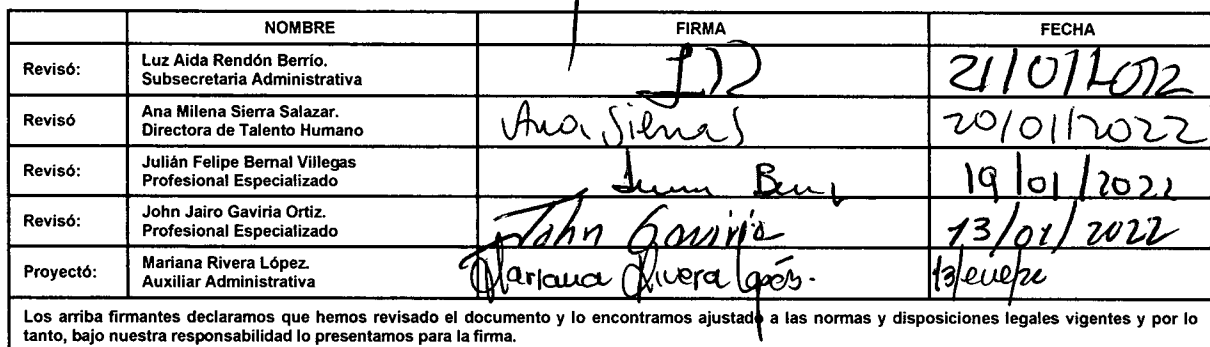 NOMBRE FIRMA FECHA
Revisó: Luz Aida Rendón Berrío.
Subsecretaria Administrativa
Revisó Ana Milena Sierra Salazar.
Directora de Talento Humano
Ana Sierra S 20/01/2022
Revisó: Julián Felipe Bernal Villegas
Profesional Especializado
19/01/2022
Revisó: John Jairo Gaviria Ortiz.
Profesional Especializado
John Gaviria 13/01/2022
Proyectó: Mariana Rivera López.
Auxiliar Administrativa
Mariana Rivera López.
Los arriba firmantes declaramos que hemos revisado el documento y lo encontramos ajustado a las normas y disposiciones legales vigentes y por lo
tanto, bajo nuestra responsabilidad lo presentamos para la firma.